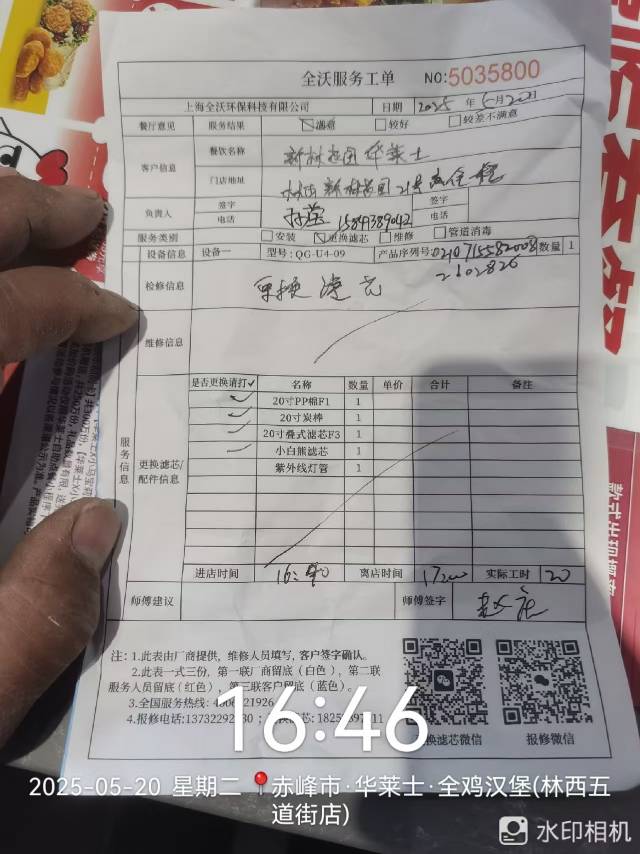 全沃服务工单 NO:5035800
上海全沃环保科技有限公司 日期 2025 年 5月20日
餐厅意见 服务结果 满意 较好 较差不满意
客户信息 餐饮名称 新林花园华莱士
门店地址 林西新林花园21号
负责人 签字 签字
电话 电话
服务类别 安装 更换滤芯 维修 管道消毒
设备信息 设备一 型号: QG-U4-09 产品序列号: 数量 1
2102826
检修信息 更换滤芯
维修信息
服务信息
更换滤芯/配件信息
是否更换请打✓ 名称 数量 单价 合计 备注
✓ 20寸PP棉F1 1
✓ 20寸炭棒 1
✓ 20寸叠式滤芯F3 1
✓ 小白熊滤芯 1
紫外线灯管 1
进店时间 16:40 离店时间 17:00 实际工时 20
师傅建议 师傅签字
注: 1.此表由厂商提供, 维修人员填写, 客户签字确认。
2.此表一式三份, 第一联厂商留底(白色), 第二联
服务人员留底(红色), 第三联客户留底(蓝色)。
3.全国服务热线:
4.报修电话:
换滤芯微信 报修微信
16:46
2025-05-20 星期二 赤峰市·华莱士·全鸡汉堡(林西五
道街店)
水印相机